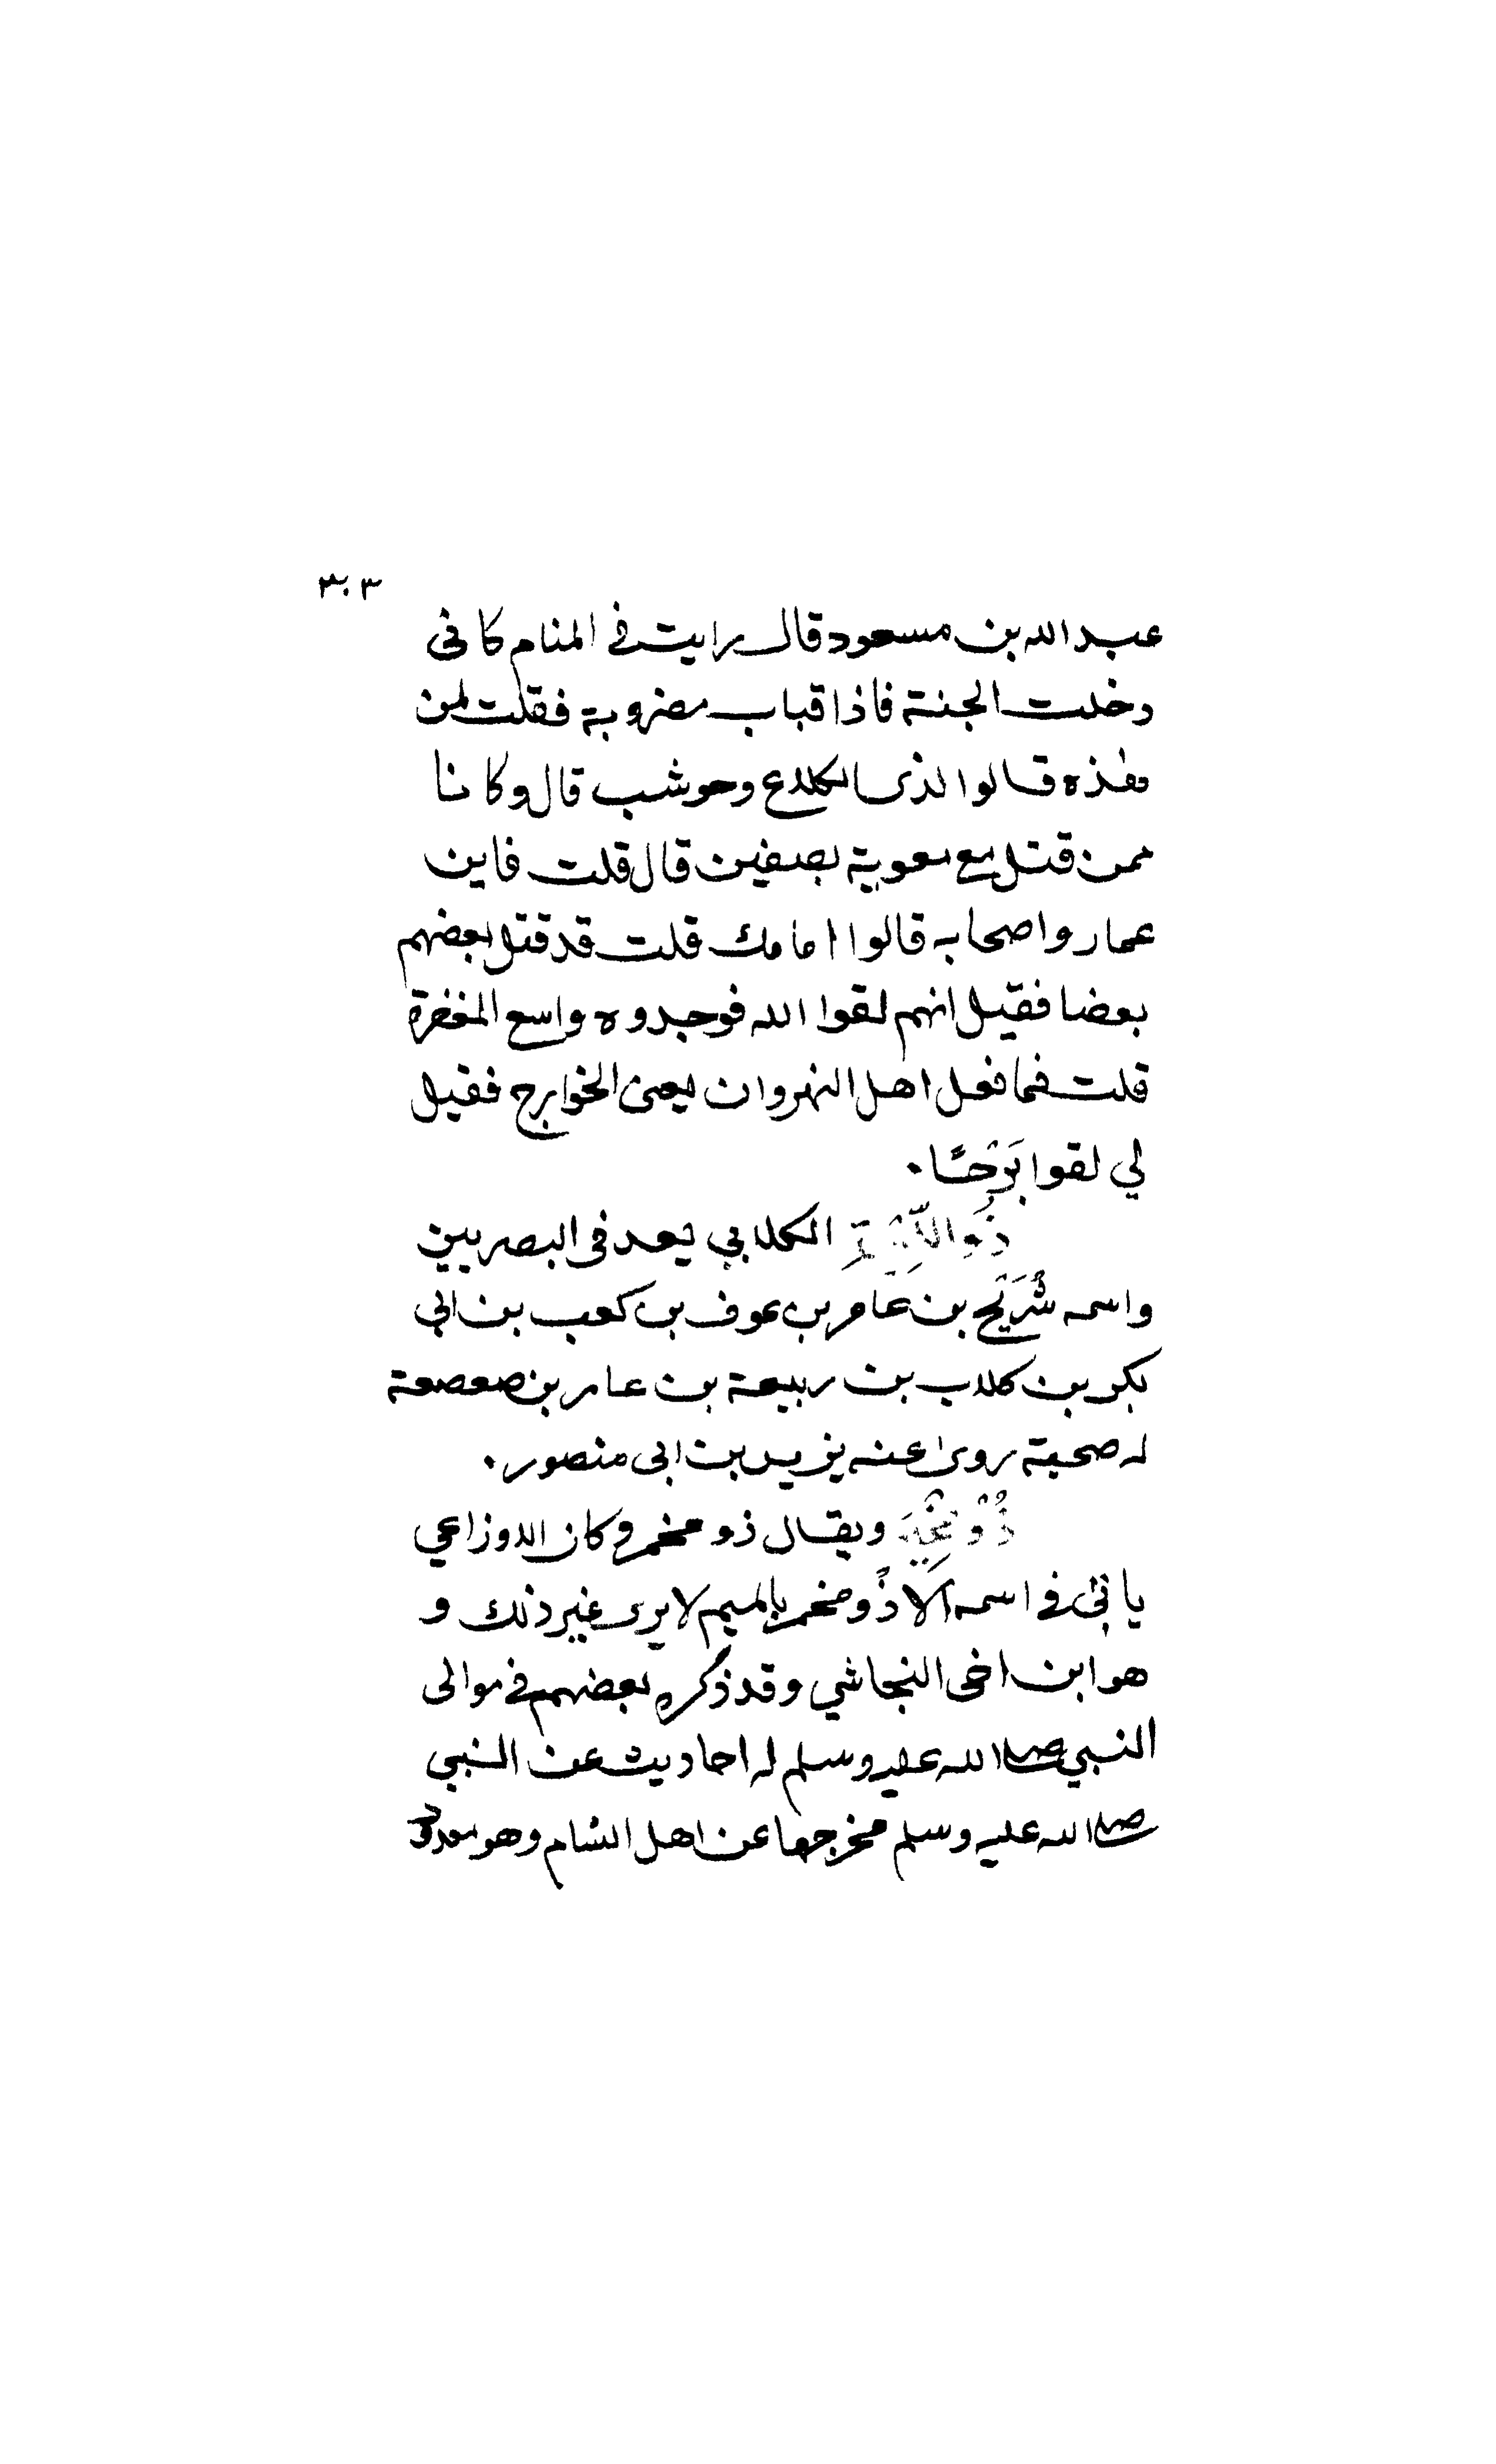 ٣٠٣
عبد الله بن مسعود قال رايت في المنام كاني
دخلت الجنة فاذا قباب مضروبة فقلت لمن
هذه قالوا لذي الكلاع وحوشب قال وكانا
ممن قتل مع معوية بصفين قال قلت فاين
عمار واصحابه قالوا امامك قلت قد قتل بعضهم
بعضا فقيل انهم لقوا الله فوجدوه واسع المغفرة
قلت فما فعل اهل النهروان يعنى الخوارج فقيل
لي لقوا بَرَحًا.
ذُو الكلابي يعد في البصريين
واسمه شُرَيح بن عَامر بن عوف بن كعب بن ابي
بكر بن كلاب بن ربيعة بن عامر بن صعصعة
له صحبة روى عنه يزيد بن ابى منصور.
ذُو ويقال ذو مخمر وكان الاوزاعي
يابى في اسمه الا ذُو مخمر بالميم لا يرى غير ذلك و
هو ابن اخى النجاشي وقد ذكره بعضهم في موالى
النبي صلى الله عليه وسلم له احاديث عن النبي
صلى الله عليه وسلم مخرجها عن اهل الشام وهو